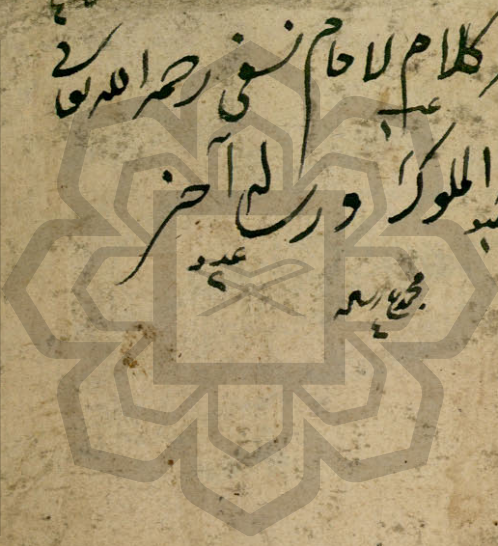 كلام لامام نسفى رحمه الله تعالى
عدد
الملوك و رساله آخر
عدد
مجموع رساله
٤